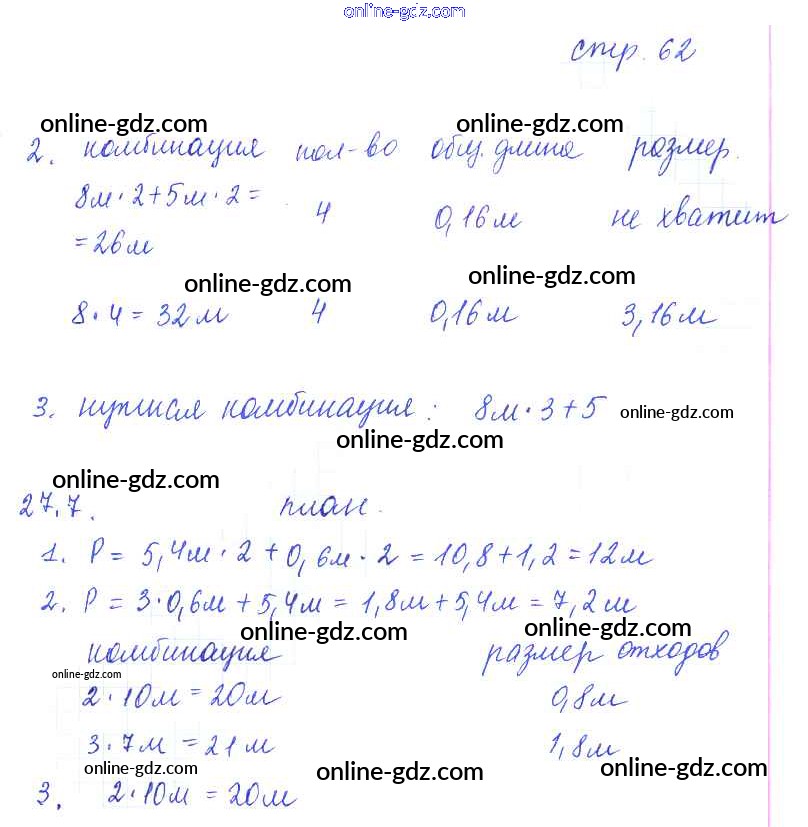 online-gdz.com
стр. 62
online-gdz.com online-gdz.com
2. комбинация кол-во общ. длина размер.
8м·2+5м·2=
=26м 4 0,16м не хватит
online-gdz.com online-gdz.com
8·4=32м 4 0,16м 3,16м
3. нужная комбинация: 8м·3+5 online-gdz.com
online-gdz.com
online-gdz.com
27.7. план.
1. P= 5,4м·2+0,6м·2=10,8+1,2=12м
2. P= 3·0,6м+5,4м=1,8м+5,4м=7,2м
online-gdz.com online-gdz.com
комбинация размер отходов
online-gdz.com
2·10м=20м 0,8м
3·7м=21м 1,8м
online-gdz.com online-gdz.com online-gdz.com
3. 2·10м=20м